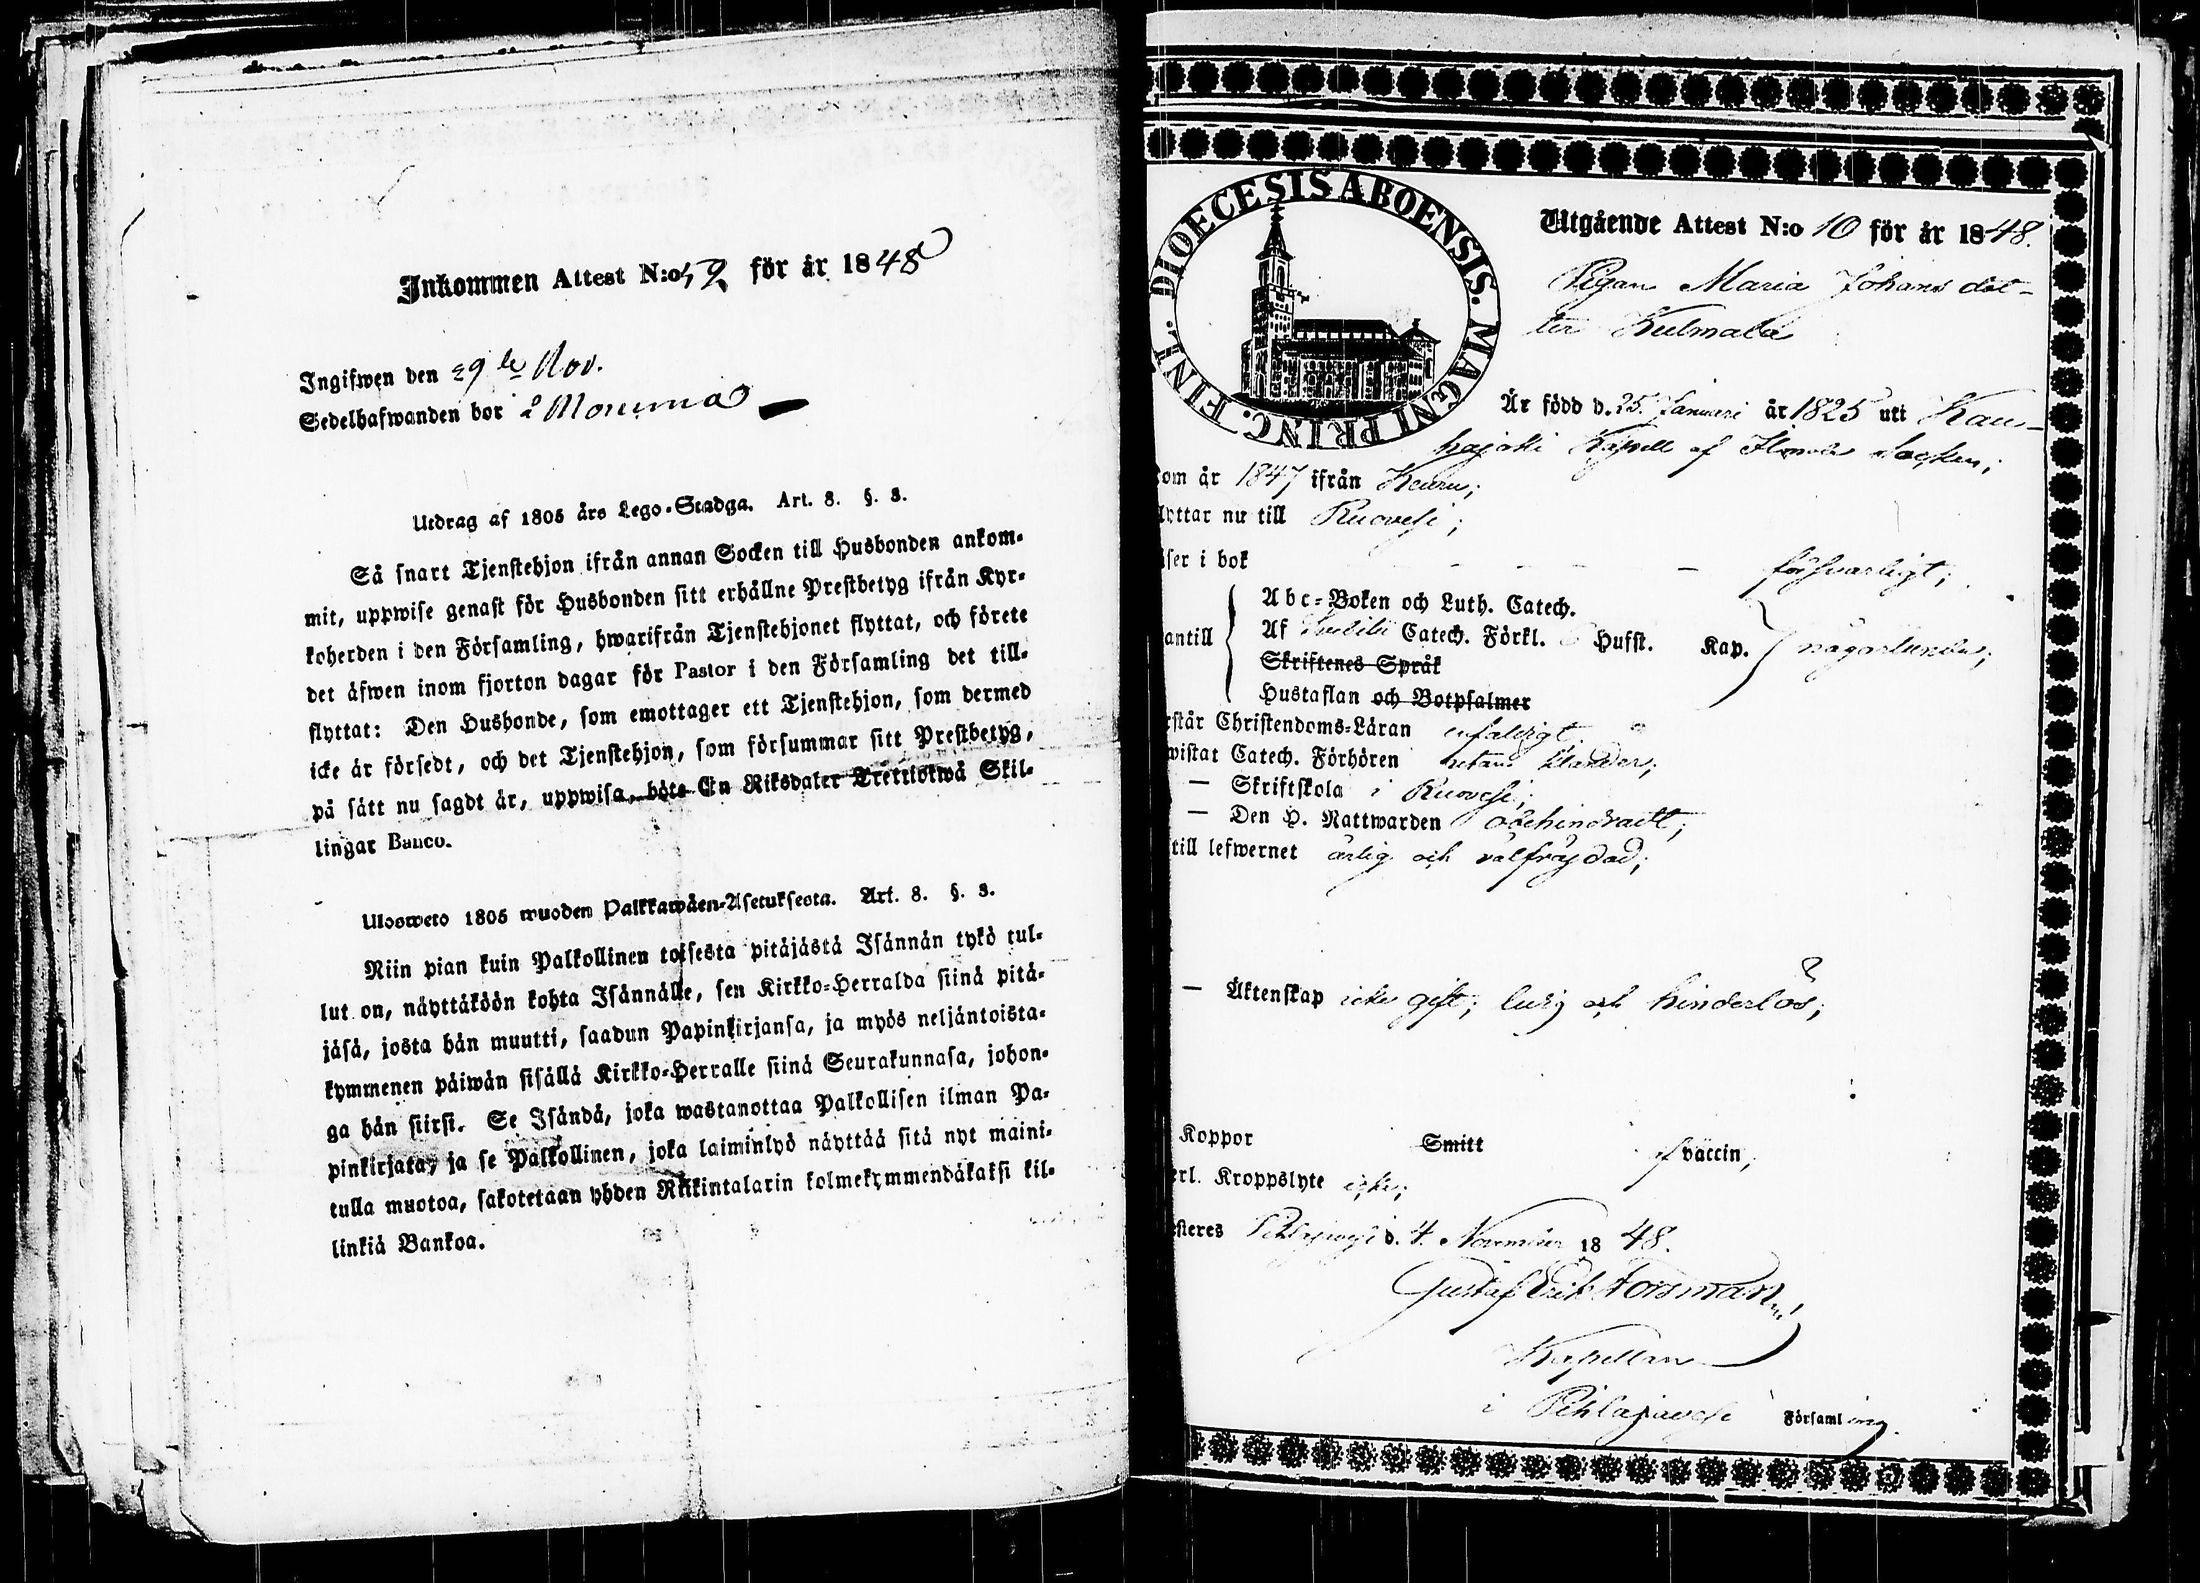 Inkommen Attest N:o 59 för år 1848
Ingifwen den 29de Nov.
Sedelhafwanden bor i Mommo
Utdrag af 1805 års Lego-Stadga. Art. 8. §. 3.
Så snart Tjenstehjon ifrån annan Socken till Husbonden ankom-
mit, uppwise genast för Husbonden sitt erhållne Prestbetyg ifrån Kyr-
koherden i den Församling, hwarifrån Tjenstehjonet flyttat, och förete
det äfwen inom fjorton dagar för Pastor i den Församling det till-
flyttat: Den Husbonde, som emottager ett Tjenstehjon, som dermed
icke är försedt, och det Tjenstehjon, som försummar sitt Prestbetyg,
på sätt nu sagdt är, uppwisa, böte En Riksdaler Trettiotwå Skil-
lingar Banco.
Ulosweto 1805 wuoden Palkkawäen-Asetuksesta. Art. 8. §. 3.
Niin pian kuin Palkollinen toisesta pitäjästä Isännän tykö tul-
lut on, näyttäköön kohta Isännälle, sen Kirkko-Herralda siinä pitä-
jäsä, josta hän muutti, saadun Papinkirjansa, ja myös neljäntoista-
kymmenen päiwän sisällä Kirkko-Herralle siinä Seurakunnasa, johon-
ga hän siirsi. Se Isändä, joka wastanottaa Palkollisen ilman Pa-
pinkirjata, ja se Palkollinen, joka laiminlyö näyttää sitä nyt maini-
tulla muotoa, sakotetaan yhden Riikintalarin kolmekymmendäkaksi kil-
linkiä Bankoa.
DIOECESIS ABOENSIS. MAGNI PRINC. FINL.
Utgående Attest N:o 10 för år 1848.
Pigan Maria Johansdot-
ter Kulmala
Är född d. 25. Januari år 1825 uti Kau-
hajoki Kapell af Ilmola Socken;
kom år 1847 ifrån Keuru;
lyttar nu till Ruovesi;
äser i bok - - - - - försvarligt;
antill
Abc-Boken och Luth. Catech.
Af Svebilii Catech. Förkl. Husst. Kap. någorlunda;
Skriftenes Språk
Hustaflan och Botpsalmer
rstår Christendoms-Läran enfaldigt.
wistat Catech. Förhören utan klander;
— Skriftskola i Ruovesi;
— Den H. Nattwarden obehindradt;
till lefwernet ärlig och välfrägdad;
— Äktenskap icke gift; ledig och hinderlös;
Koppor Smitt af väccin;
erl. Kroppslyte icke;
esteres Pihlajavesi d. 4. November 1848.
Gustaf Erik Forsman
Kapellan
i Pihlajavesi Församling.